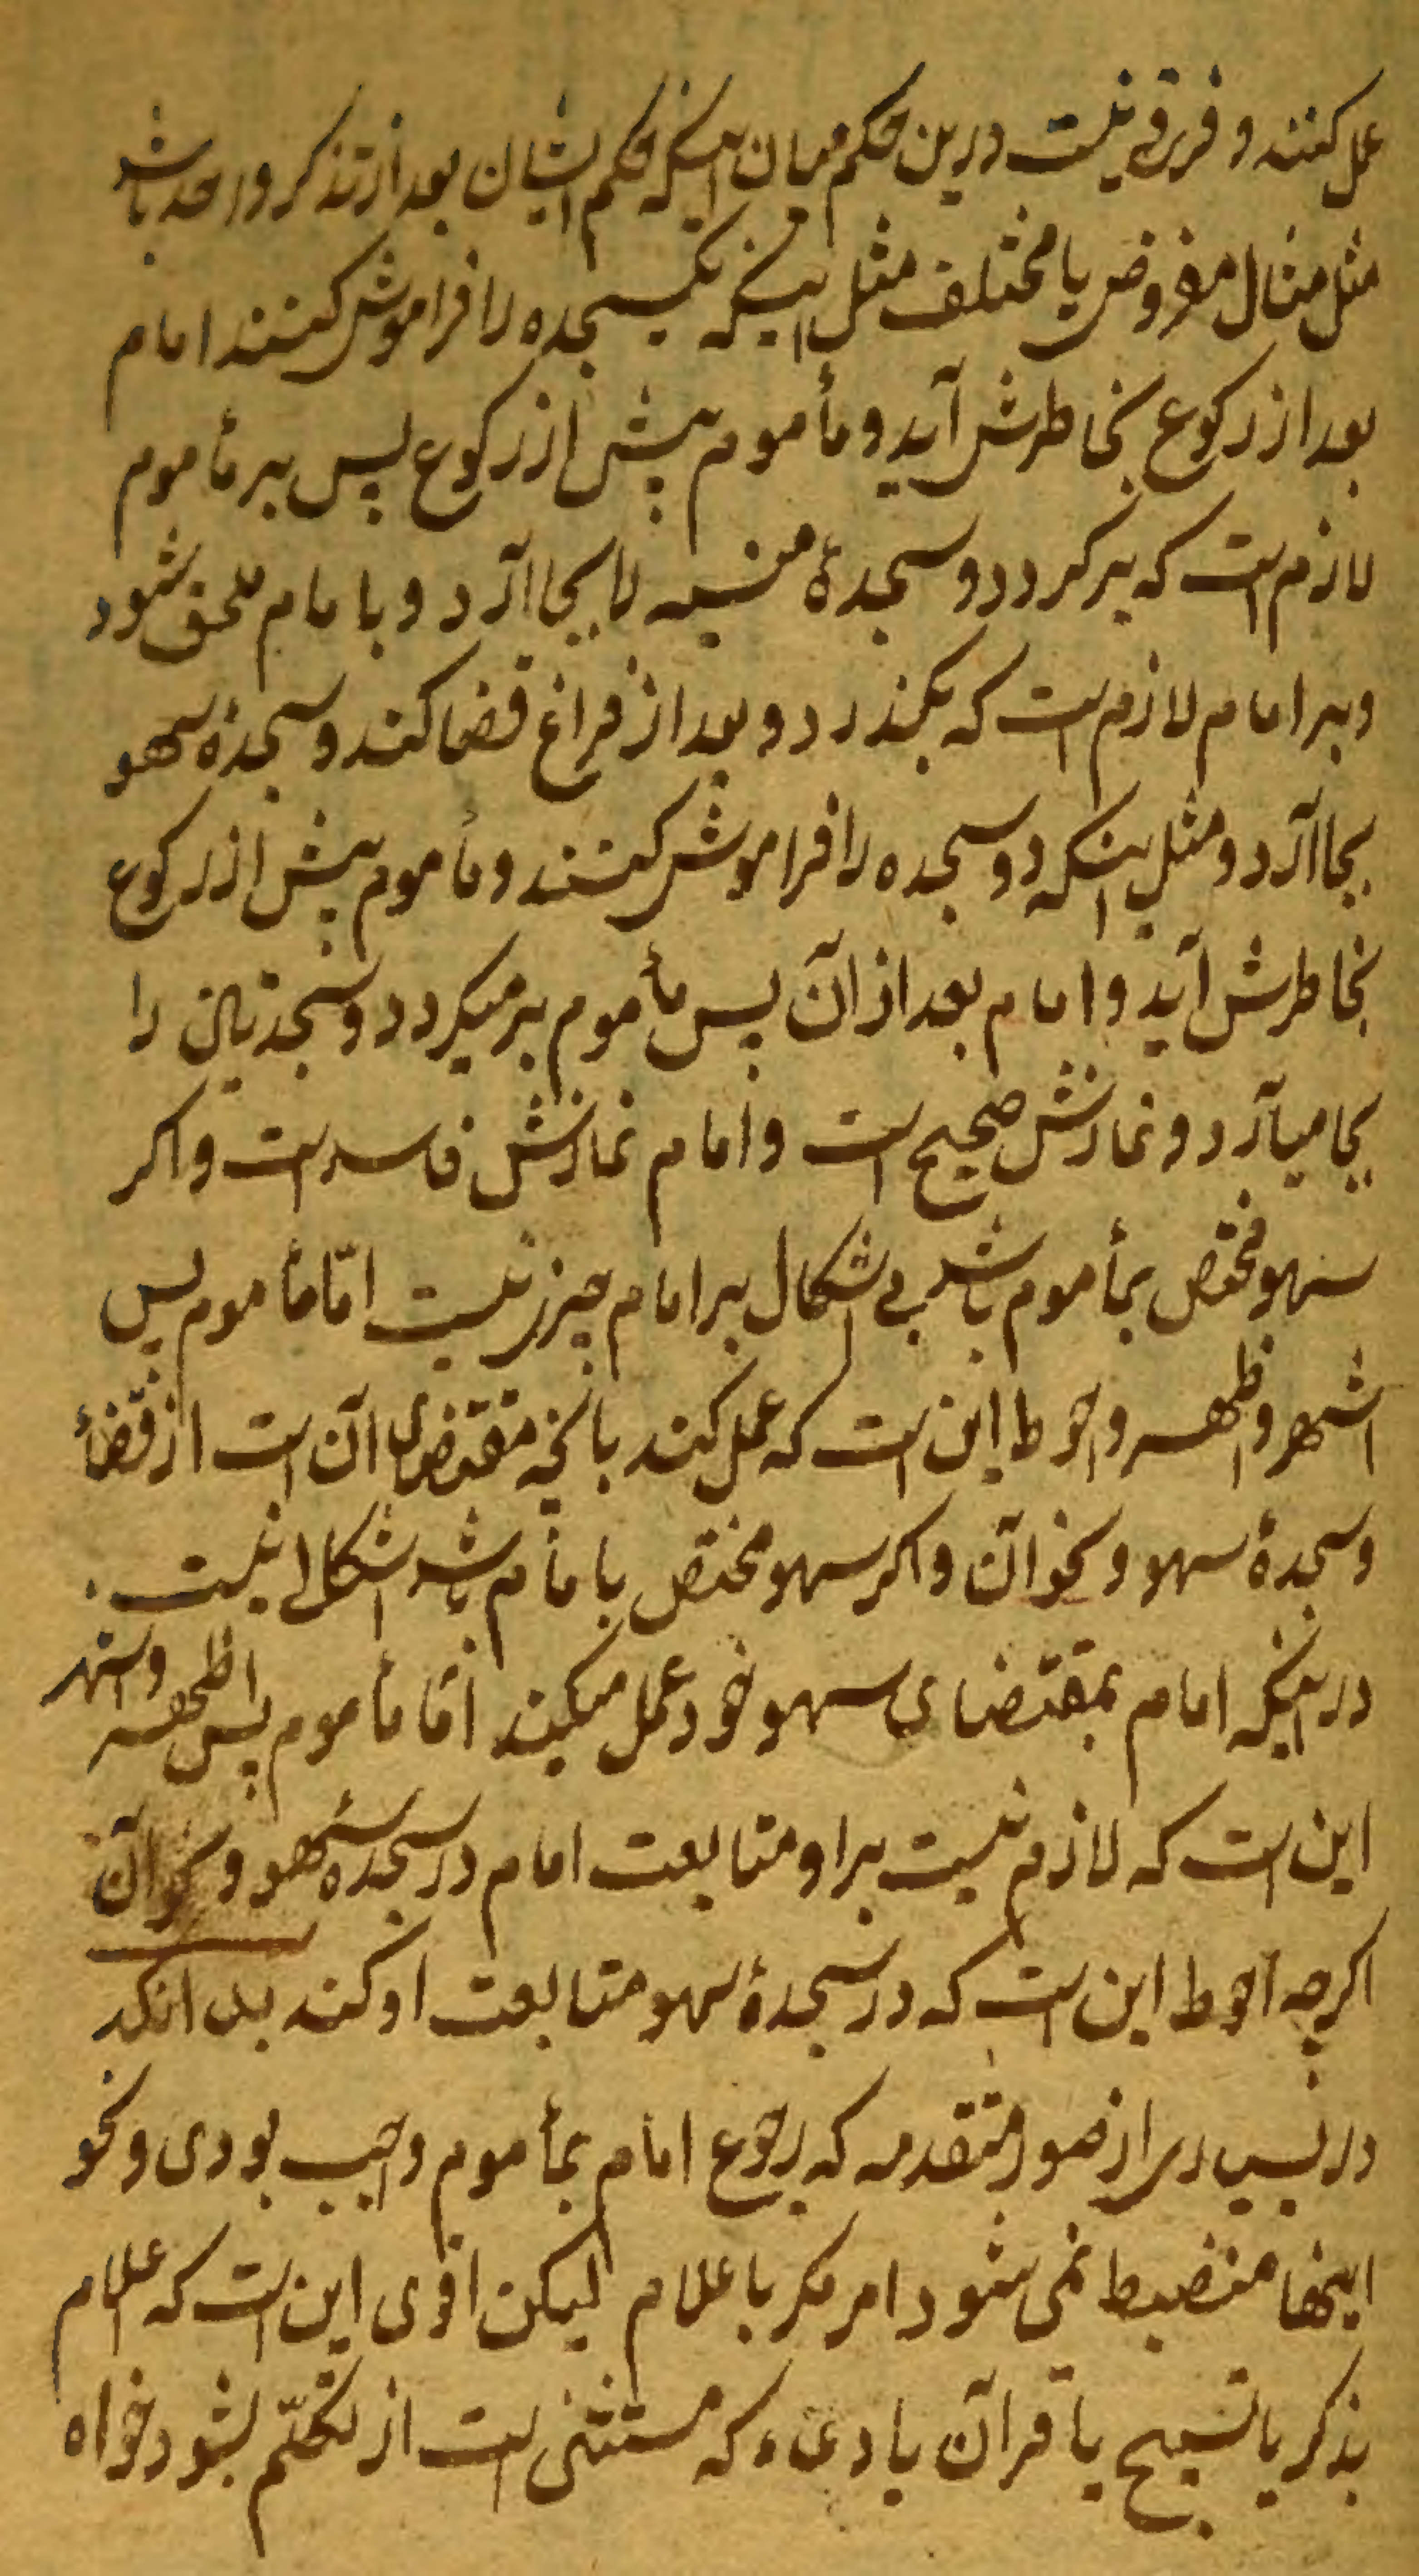 عمل کنند و فرقی نیست درین حکم میان اینکه حکم ایشان بعد از تذکر واحد باشد
مثل مثال مفروض یا مختلف مثل اینکه یکسجده را فراموش کنند امام
بعد از رکوع بخاطرش آید و مأموم پیش از رکوع پس بر مأموم
لازم است که برکردد و سجدهٔ منسیه را بجا آرد و با امام ملحق شود
و بر امام لازم است که بکذرد و بعد از فراغ قضا کند و سجدهٔ سهو
بجا آرد و مثل اینکه دو سجده را فراموش کنند و مأموم پیش از رکوع
بخاطرش آید و امام بعد از آن پس مأموم برمیکردد و سجدتین را
بجا میآرد و نمازش صحیح است و امام نمازش فاسد است و اکر
سهو مختص بمأموم باشد بی اشکال بر امام چیزی نیست امّا مأموم پس
اشهر و اظهر و احوط این است که عمل کند بانچه مقتضای آن است از قضأ
و سجدهٔ سهو و نحو آن و اکر سهو مختص با مام باشد اشکالی نیست
در اینکه امام بمقتضای سهو خود عمل میکند امّا مأموم پس اظهر و اشهر
این است که لازم نیست بر او متابعت امام در سجدهٔ سهو و نحو آن
اکرچه احوط این است که در سجدهٔ سهو متابعت او کند بدانکه
در بسیاری از صور متقدمه که رجوع امام بمأموم واجب بودی و نحو
اینها منضبط نمی شود امر مکر با علام لیکن اقوی این است که اعلام
بذکر یا تسبیح یا قرآن یا دعاء که مستثنی است از تکلّم بشود خواه